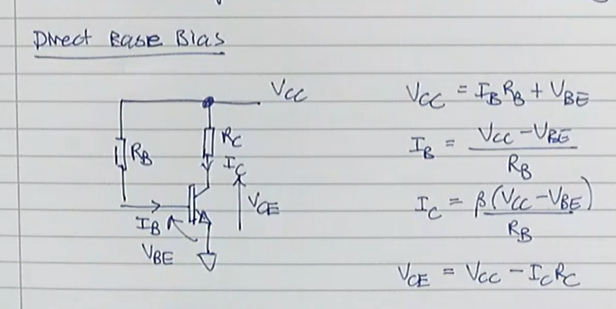 Direct Base Bias
VCC
RB
RC
IC
VCE
IB
VBE
VCC = IB RB + VBE
IB = VCC - VBE / RB
IC = β (VCC - VBE) / RB
VCE = VCC - IC RC